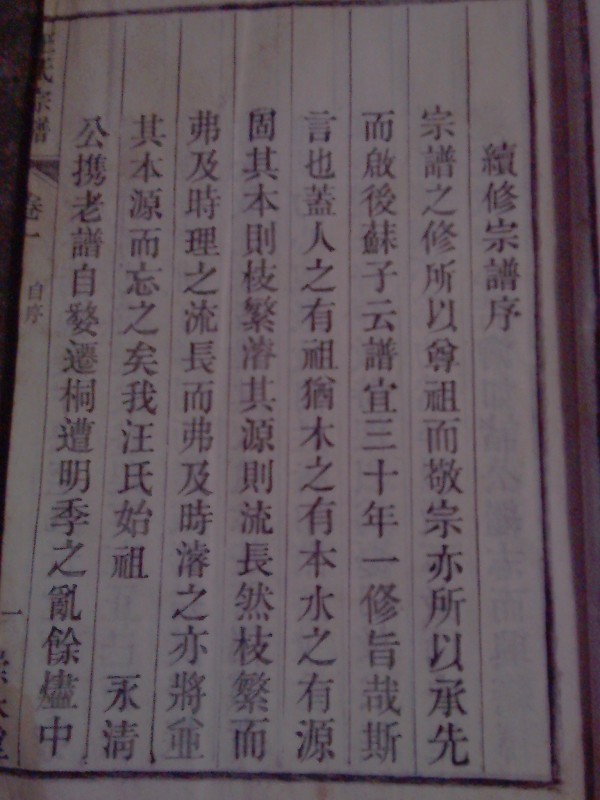 續修宗譜序
宗譜之修所以尊祖而敬宗亦所以承先
而啟後蘇子云譜宜三十年一修旨哉斯
言也蓋人之有祖猶木之有本水之有源
固其本則枝繁濬其源則流長然枝繁而
弗及時理之流長而弗及時濬之亦將並
其本源而忘之矣我汪氏始祖 永清
公携老譜自婺遷桐遭明季之亂餘燼中
氏宗譜
卷一
自序
一